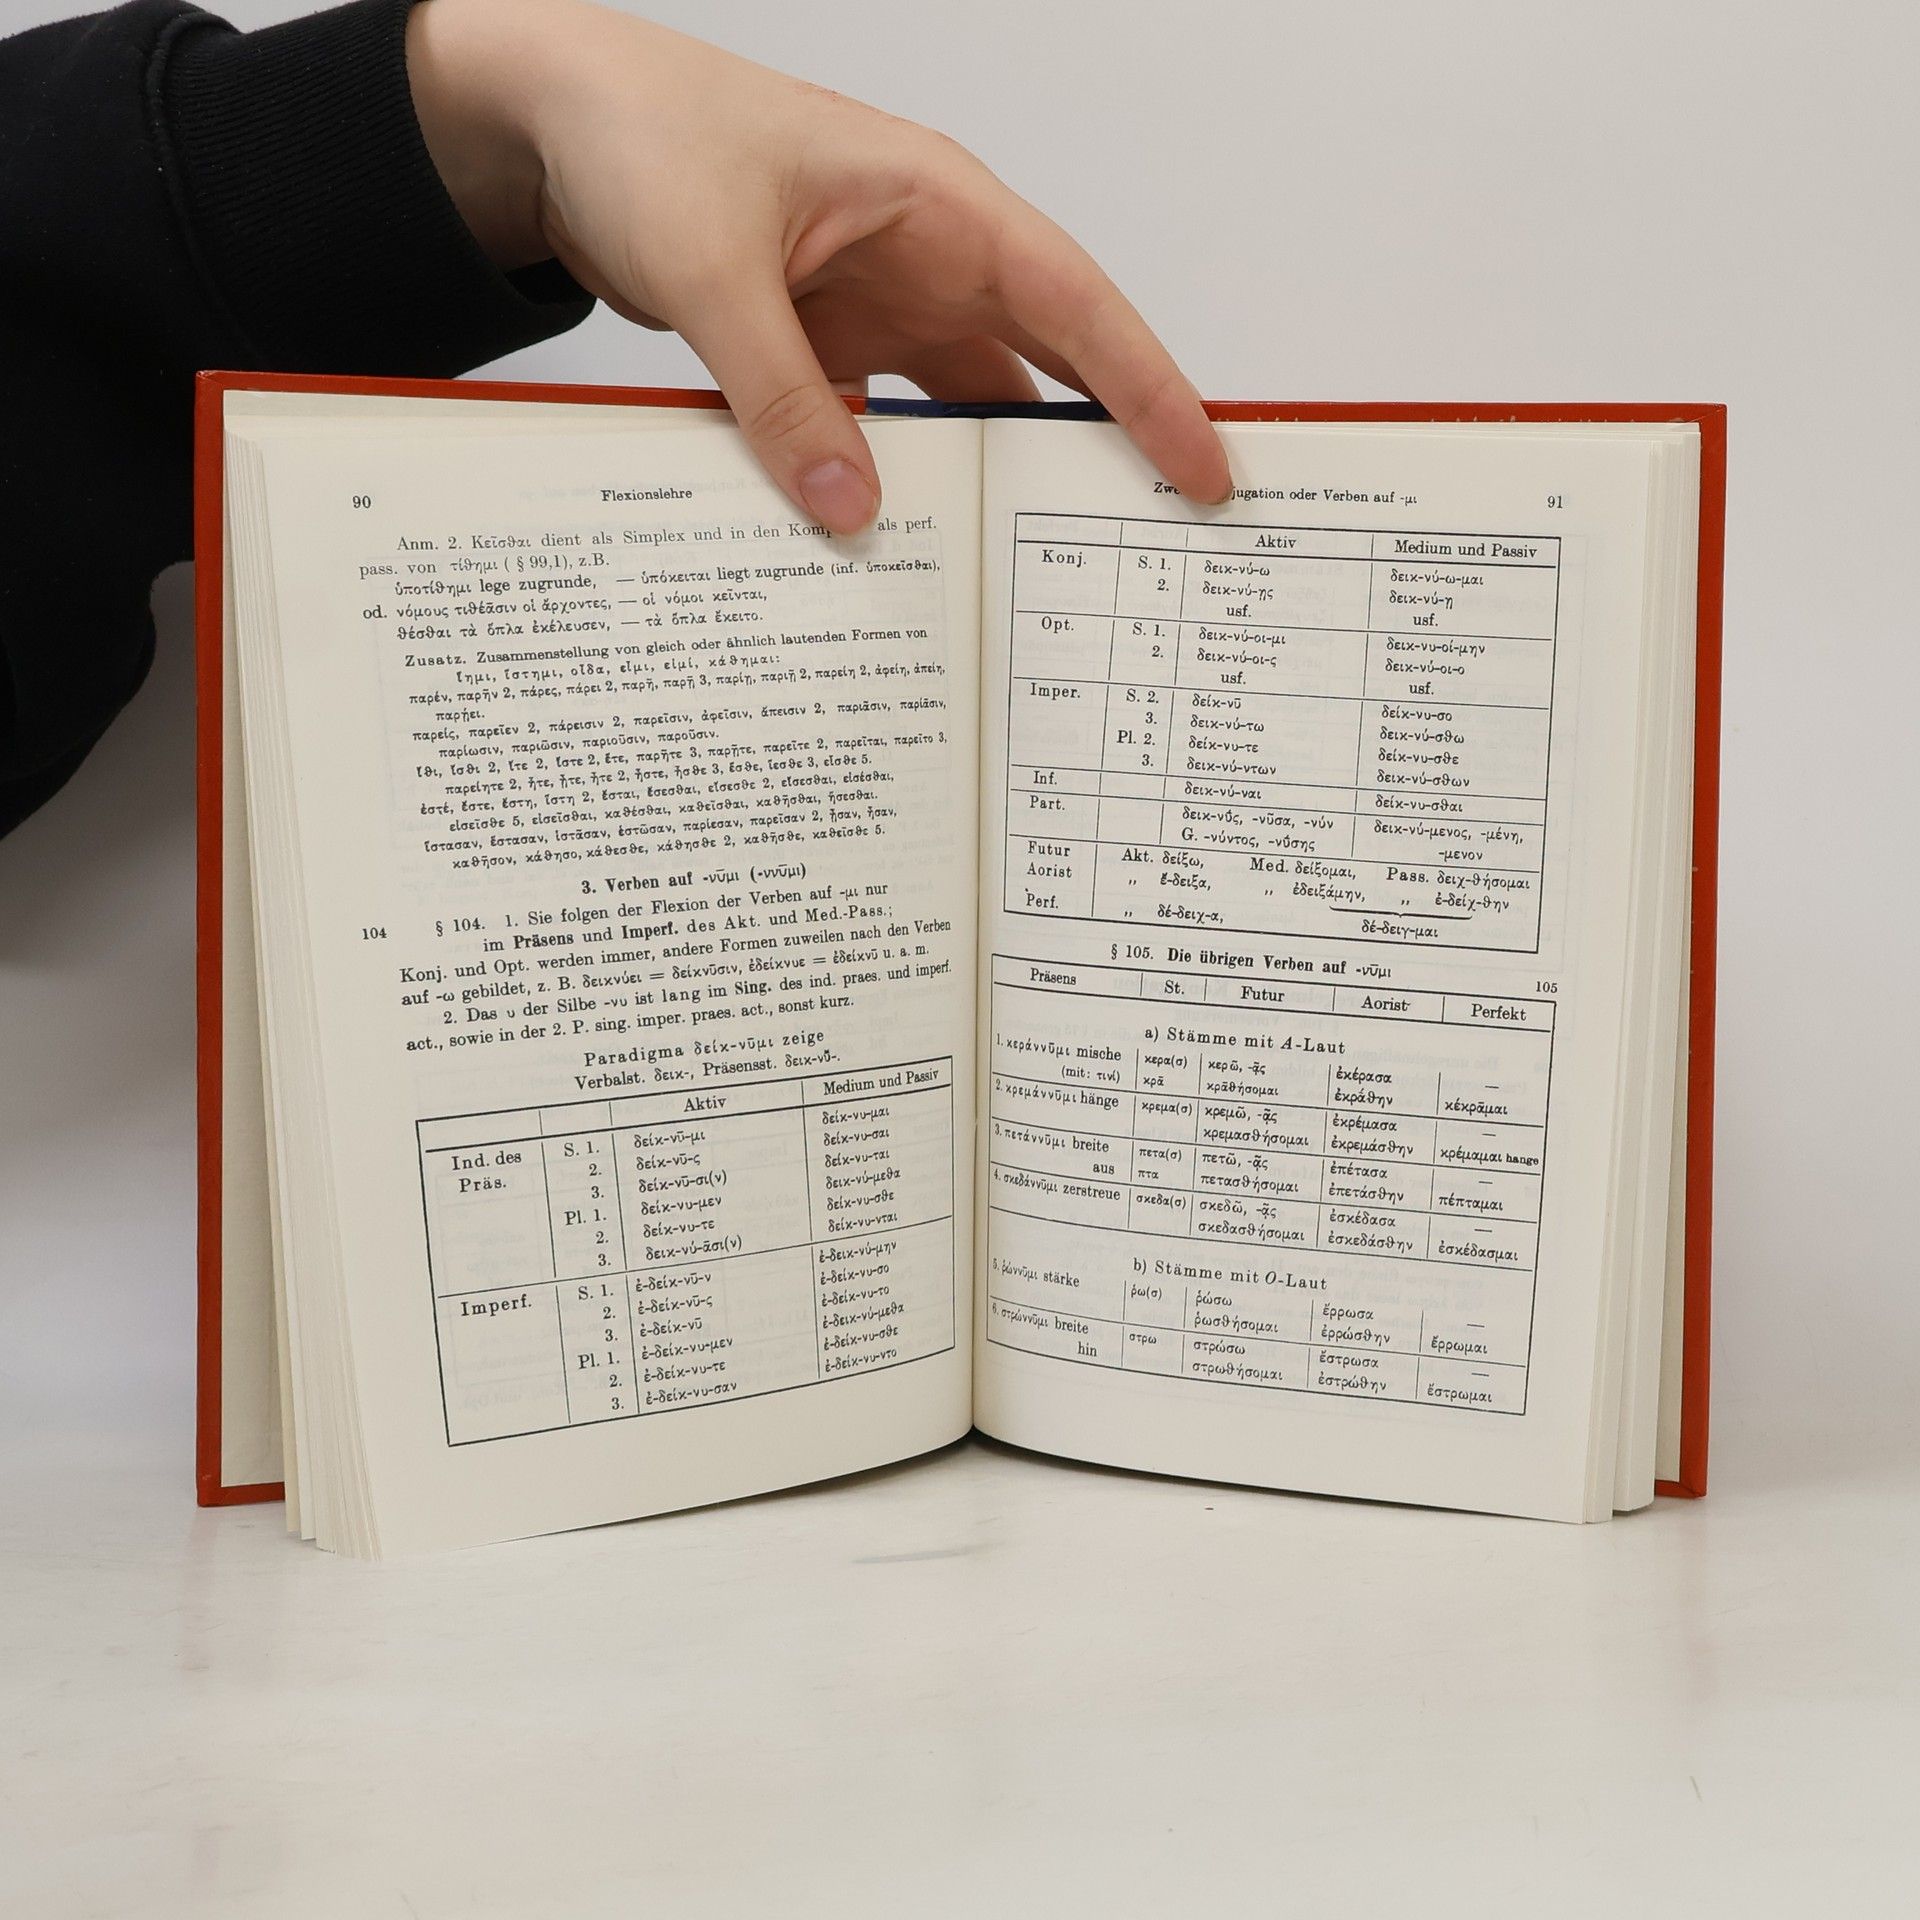 90 Flexionslehre
Anm. 2. Κεῖσθαι dient als Simplex und in den als perf.
pass. von τίθημι ( § 99,1), z.B.
ὑποτίθημι lege zugrunde, — ὑπόκειται liegt zugrunde (inf. ὑποκεῖσθαι),
od. νόμους τιθέᾱσιν οἱ ἄρχοντες, — οἱ νόμοι κεῖνται,
θέσθαι τὰ ὅπλα ἐκέλευσεν, — τὰ ὅπλα ἔκειτο.
Zusatz. Zusammenstellung von gleich oder ähnlich lautenden Formen von
ἵημι, ἵστημι, οἶδα, εἶμι, εἰμί, κάθημαι:
παρέν, παρῆν 2, πάρες, πάρει 2, παρῇ, παρῇ 3, παρίῃ, παριῇ 2, παρείη 2, ἀφείη, ἀπείη,
παρῄει.
παρείς, παρεῖεν 2, πάρεισιν 2, παρεῖσιν, ἀφεῖσιν, ἄπεισιν 2, παριᾶσιν, παρίᾱσιν,
παρίωσιν, παριῶσιν, παριοῦσιν, παροῦσιν.
ἴθι, ἴσθι 2, ἴτε 2, ἴστε 2, ἔτε, παρῆτε 3, παρῇτε, παρεῖτε 2, παρεῖται, παρεῖτο 3,
παρείητε 2, ἦτε, ᾖτε, ἧτε 2, ᾖστε, ἦσθε 3, ἕσθε, ἵεσθε 3, εἶσθε 5.
ἐστέ, ἔστε, ἔστη, ἵστη 2, ἔσται, ἔσεσθαι, εἴσεσθε 2, εἴσεσθαι, εἰσέσθαι,
εἰσεῖσθε 5, εἰσεῖσθαι, καθέσθαι, καθεῖσθαι, καθῆσθαι, ἥσεσθαι.
ἵστασαν, ἔστασαν, ἱστᾶσαν, ἑστῶσαν, παρίεσαν, παρεῖσαν 2, ᾖσαν, ἦσαν,
καθῆσον, κάθησο, κάθεσθε, κάθησθε 2, καθῆσθε, καθεῖσθε 5.
3. Verben auf -νῡμι (-ννῡμι)
104 § 104. 1. Sie folgen der Flexion der Verben auf -μι nur
im Präsens und Imperf. des Akt. und Med.-Pass.;
Konj. und Opt. werden immer, andere Formen zuweilen nach den Verben
auf -ω gebildet, z. B. δεικνύει = δείκνῡσιν, ἐδείκνυε = ἐδείκνῡ u. a. m.
2. Das υ der Silbe -νυ ist lang im Sing. des ind. praes. und imperf.
act., sowie in der 2. P. sing. imper. praes. act., sonst kurz.
Paradigma δείκ-νῡμι zeige
Verbalst. δεικ-, Präsensst. δεικ-νῠ̄-.
Aktiv Medium und Passiv
Ind. des S. 1. δείκ-νῡ-μι δείκ-νυ-μαι
Präs. 2. δείκ-νῡ-ς δείκ-νυ-σαι
3. δείκ-νῡ-σι(ν) δείκ-νυ-ται
Pl. 1. δείκ-νυ-μεν δεικ-νύ-μεθα
2. δείκ-νυ-τε δείκ-νυ-σθε
3. δεικ-νύ-ᾱσι(ν) δείκ-νυ-νται
Imperf. S. 1. ἐ-δείκ-νῡ-ν ἐ-δεικ-νύ-μην
2. ἐ-δείκ-νῡ-ς ἐ-δείκ-νυ-σο
3. ἐ-δείκ-νῡ ἐ-δείκ-νυ-το
Pl. 1. ἐ-δείκ-νυ-μεν ἐ-δεικ-νύ-μεθα
2. ἐ-δείκ-νυ-τε ἐ-δείκ-νυ-σθε
3. ἐ-δείκ-νυ-σαν ἐ-δείκ-νυ-ντο
oder Verben auf -μι 91
Aktiv Medium und Passiv
Konj. S. 1. δεικ-νύ-ω δεικ-νύ-ω-μαι
2. δεικ-νύ-ῃς δεικ-νύ-ῃ
usf. usf.
Opt. S. 1. δεικ-νύ-οι-μι δεικ-νυ-οί-μην
2. δεικ-νύ-οι-ς δεικ-νύ-οι-ο
usf. usf.
Imper. S. 2. δείκ-νῡ δείκ-νυ-σο
3. δεικ-νύ-τω δεικ-νύ-σθω
Pl. 2. δείκ-νυ-τε δείκ-νυ-σθε
3. δεικ-νύ-ντων δεικ-νύ-σθων
Inf. δεικ-νύ-ναι δείκ-νυ-σθαι
Part. δεικ-νῡ́ς, -νῦσα, -νύν δεικ-νύ-μενος, -μένη,
G. -νύντος, -νῡ́σης -μενον
Futur Akt. δείξω, Med. δείξομαι, Pass. δειχ-θήσομαι
Aorist „ ἔ-δειξα, „ ἐδειξάμην, „ ἐ-δείχ-θην
Perf. „ δέ-δειχ-α, δέ-δειγ-μαι
§ 105. Die übrigen Verben auf -νῡμι 105
Präsens St. Futur Aorist Perfekt
a) Stämme mit A-Laut
1. κεράννῡμι mische κερα(σ) κερῶ, -ᾷς ἐκέρασα —
(mit: τινί) κρᾱ κρᾱθήσομαι ἐκράθην κέκρᾱμαι
2. κρεμάννῡμι hänge κρεμα(σ) κρεμῶ, -ᾷς ἐκρέμασα —
κρεμασθήσομαι ἐκρεμάσθην κρέμαμαι hange
3. πετάννῡμι breite πετα(σ) πετῶ, -ᾷς ἐπέτασα —
aus πτα πετασθήσομαι ἐπετάσθην πέπταμαι
4. σκεδάννῡμι zerstreue σκεδα(σ) σκεδῶ, -ᾷς ἐσκέδασα —
σκεδασθήσομαι ἐσκεδάσθην ἐσκέδασμαι
b) Stämme mit O-Laut
5. ῥώννῡμι stärke ῥω(σ) ῥώσω ἔρρωσα —
ῥωσθήσομαι ἐρρώσθην ἔρρωμαι
6. στρώννῡμι breite στρω στρώσω ἔστρωσα —
hin στρωθήσομαι ἐστρώθην ἔστρωμαι